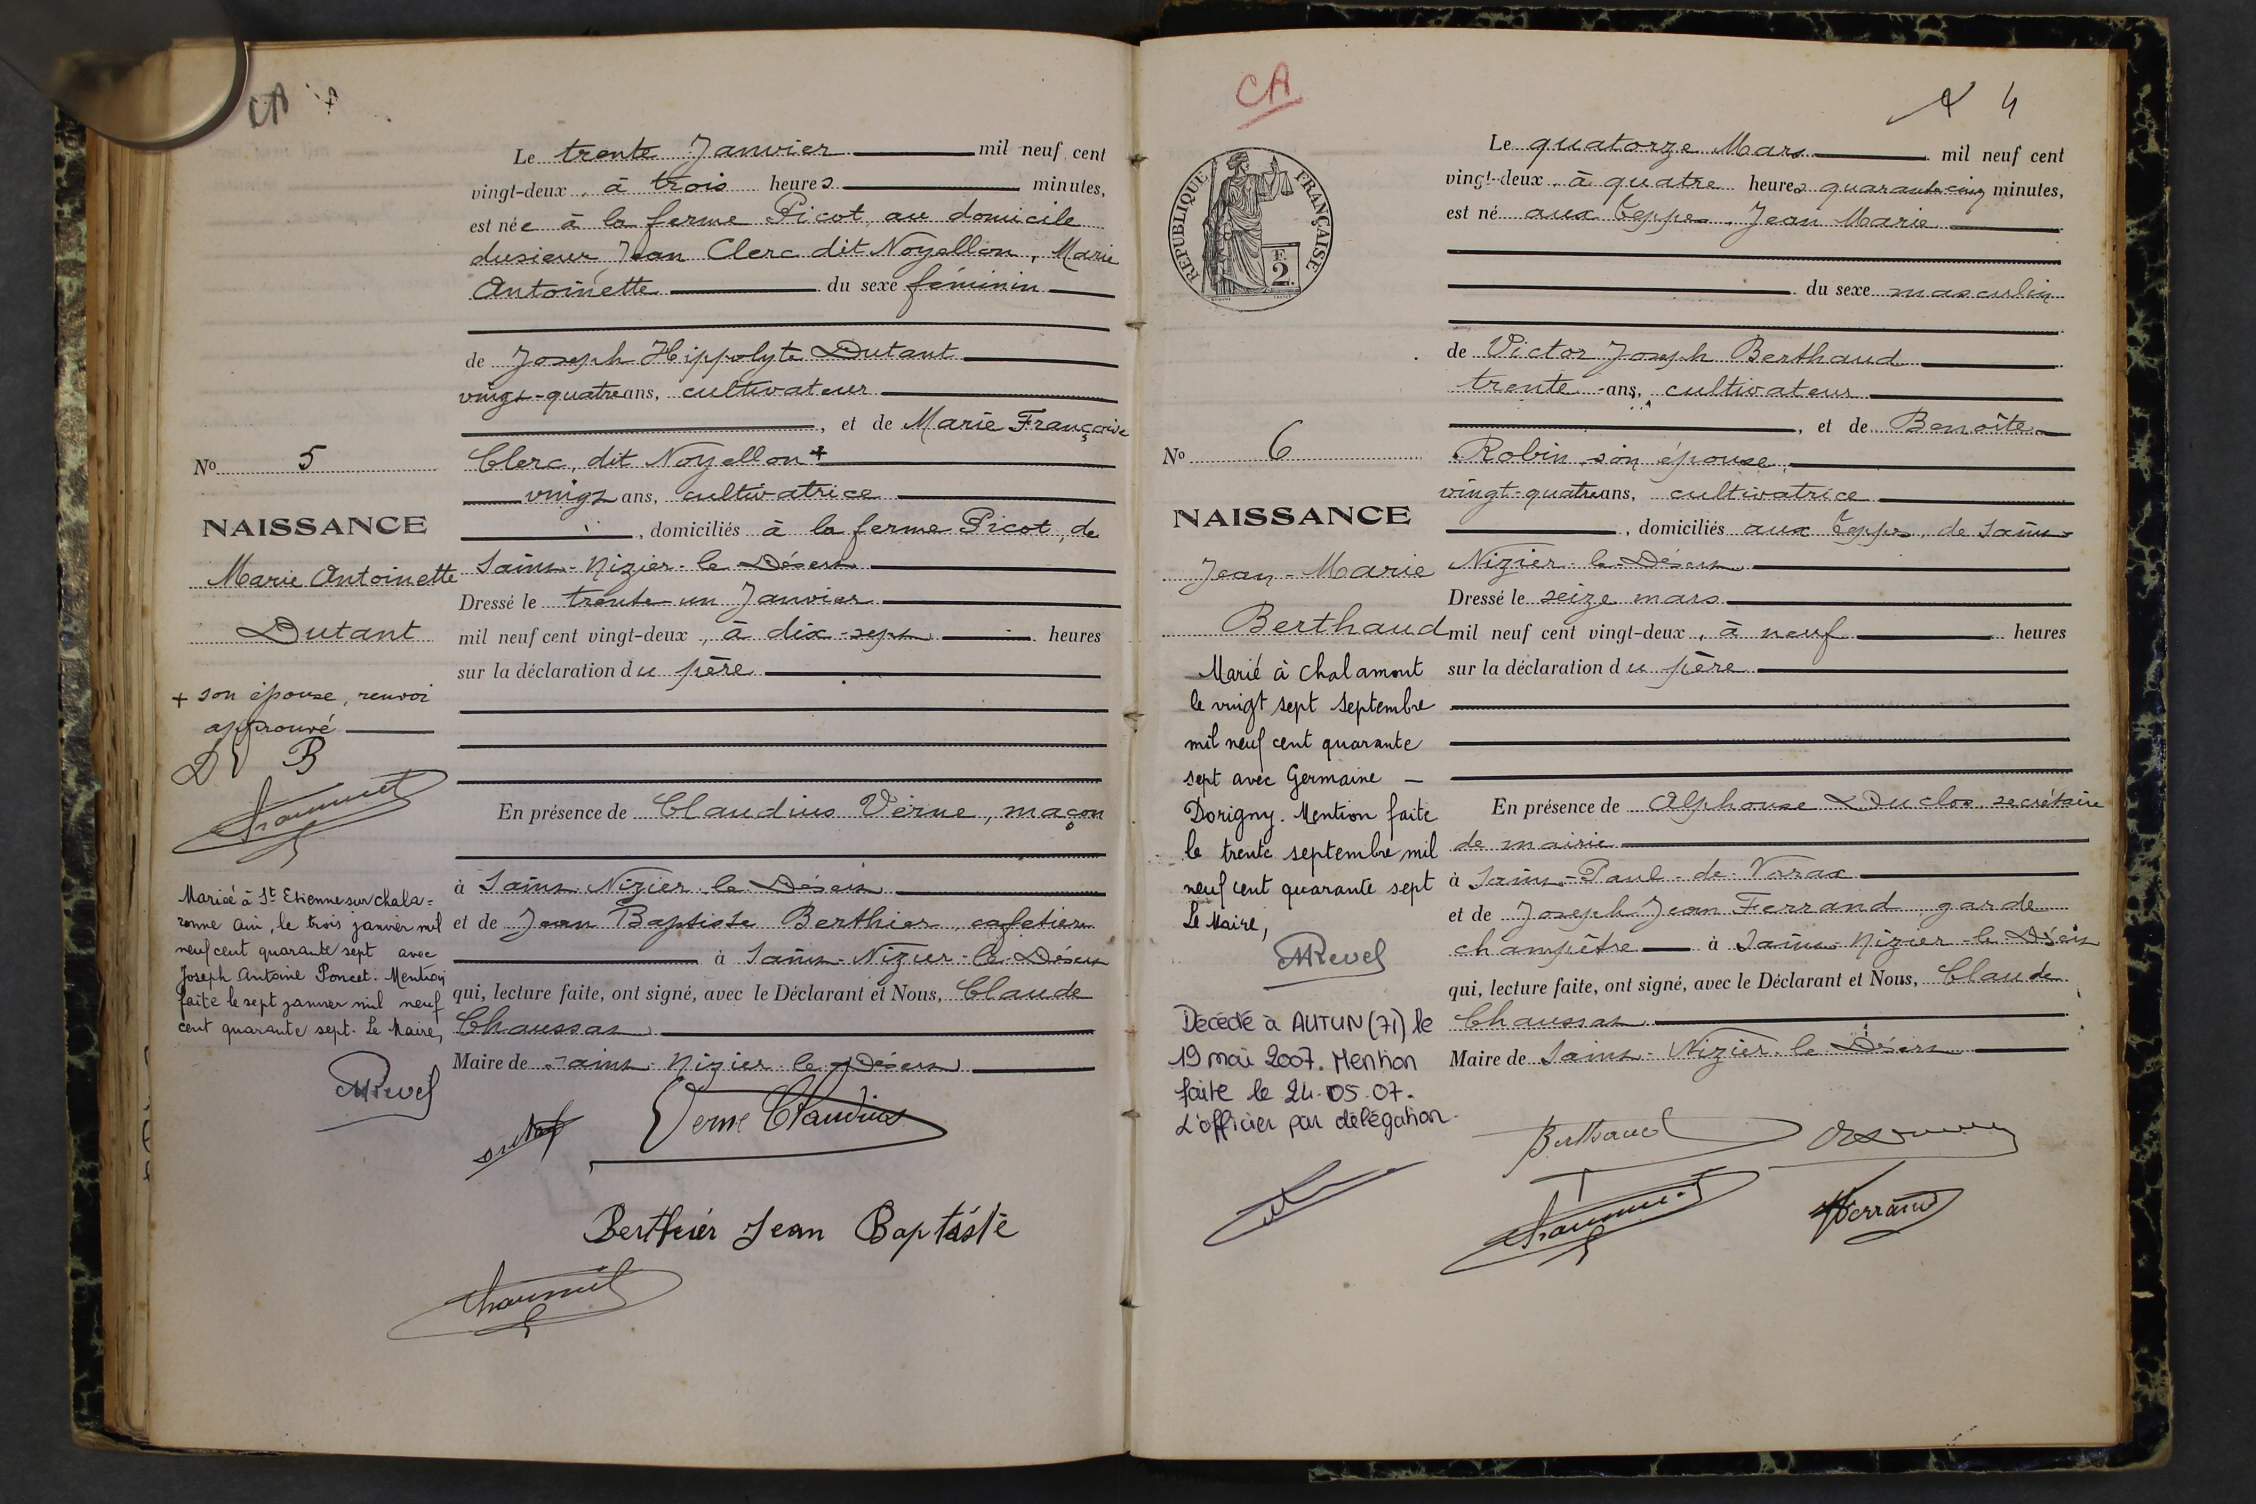 CA
Le trente Janvier mil neuf cent
vingt-deux, à trois heures minutes,
est née à la ferme Picot, au domicile
dusieur Jean Clerc dit Noyellon, Marie
Antoinette du sexe féminin
de Joseph Hippolyte Dutant
vingt-quatre ans, cultivateur
, et de Marie Françoise
Clerc, dit Noyellon +
vingt ans, cultivatrice
, domiciliés à la ferme Picot, de
Saint-Nizier-le-Désert
Dressé le trente-un Janvier
mil neuf cent vingt-deux, à dix-sept heures
sur la déclaration du père
En présence de Claudius Verne, maçon
à Saint-Nizier-le-Désert
et de Jean Baptiste Berthier, cafetier
à Saint-Nizier-le-Désert
qui, lecture faite, ont signé, avec le Déclarant et Nous, Claude
Chaussat
Maire de Saint-Nizier-le-Désert
No 5
NAISSANCE
Marie Antoinette
Dutant
+ son épouse, renvoi
approuvé
D V B
Mariée à St Etienne sur chala=
ronne Ain, le trois janvier mil
neuf cent quarante sept avec
Joseph Antoine Poncet. Mention
faite le sept janvier mil neuf
cent quarante sept. Le Maire,
MRevel
Verne Claudius
Berthier Jean Baptiste
CA
4
RÉPUBLIQUE FRANÇAISE
F.
2.
Le quatorze Mars mil neuf cent
vingt-deux, à quatre heures quarante cinq minutes,
est né aux Teppes, Jean Marie
du sexe masculin
de Victor Joseph Berthaud
trente ans, cultivateur
, et de Benoîte
Robin son épouse,
vingt-quatre ans, cultivatrice
, domiciliés aux Teppes, de Saint-
Nizier-le-Désert
Dressé le seize mars
mil neuf cent vingt-deux, à neuf heures
sur la déclaration du père
En présence de Alphonse Duclos secrétaire
de mairie
à Saint-Paul-de-Varax
et de Joseph Jean Ferrand garde
champêtre à Saint-Nizier-le-Désert
qui, lecture faite, ont signé, avec le Déclarant et Nous, Claude
Chaussat
Maire de Saint-Nizier-le-Désert
No 6
NAISSANCE
Jean-Marie
Berthaud
Marié à Chalamont
le vingt sept septembre
mil neuf cent quarante
sept avec Germaine
Dorigny. Mention faite
le trente septembre mil
neuf cent quarante sept
Le Maire,
MRevel
Décédé à AUTUN (71) le
19 mai 2007. Mention
faite le 24.05.07.
L'officier par délégation.
Berthaud
Ferrand